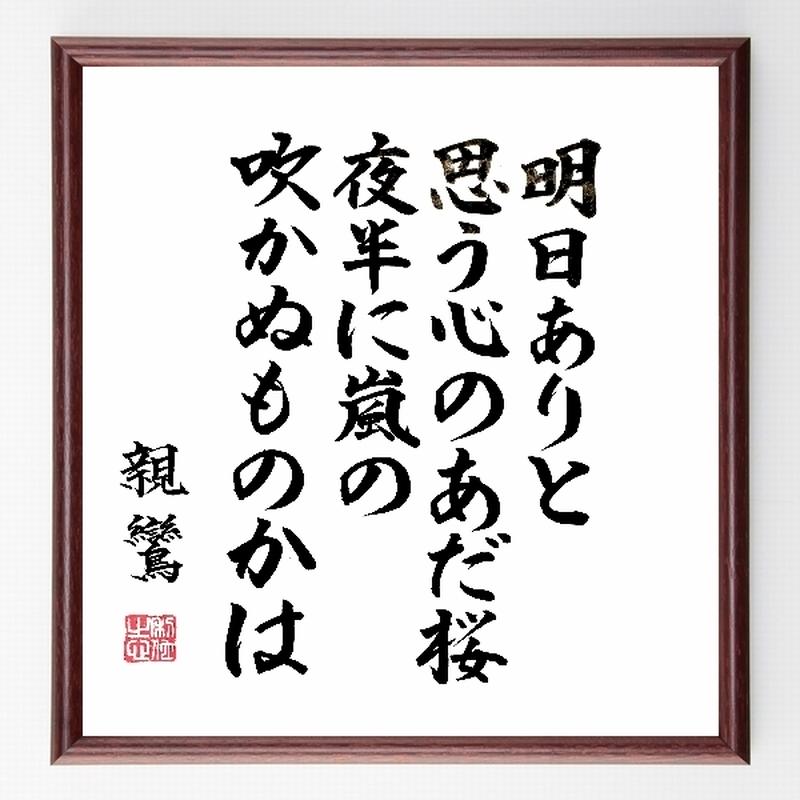 明日ありと
思う心のあだ桜
夜半に嵐の
吹かぬものかは
親鸞